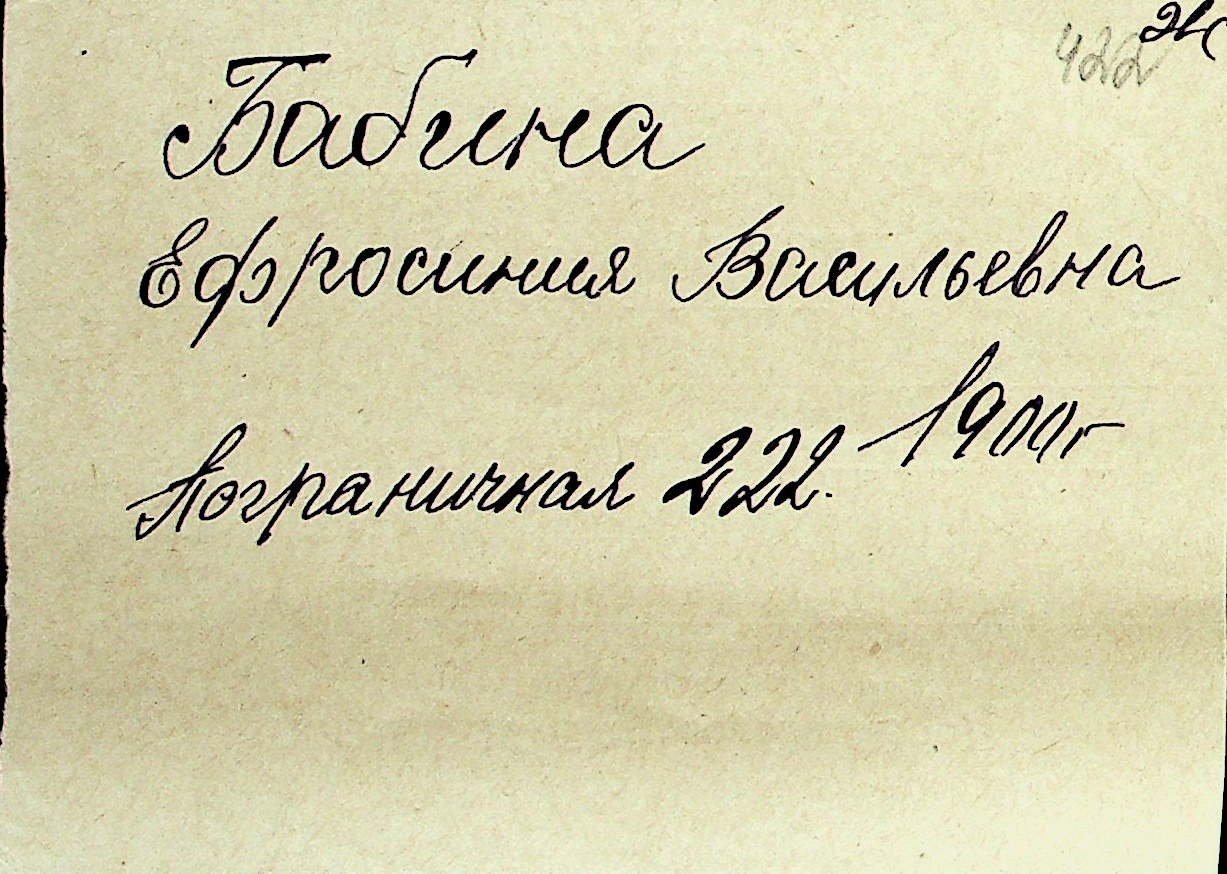 422
Бабина
Ефросиния Васильевна
1900г
Пограничная 222.